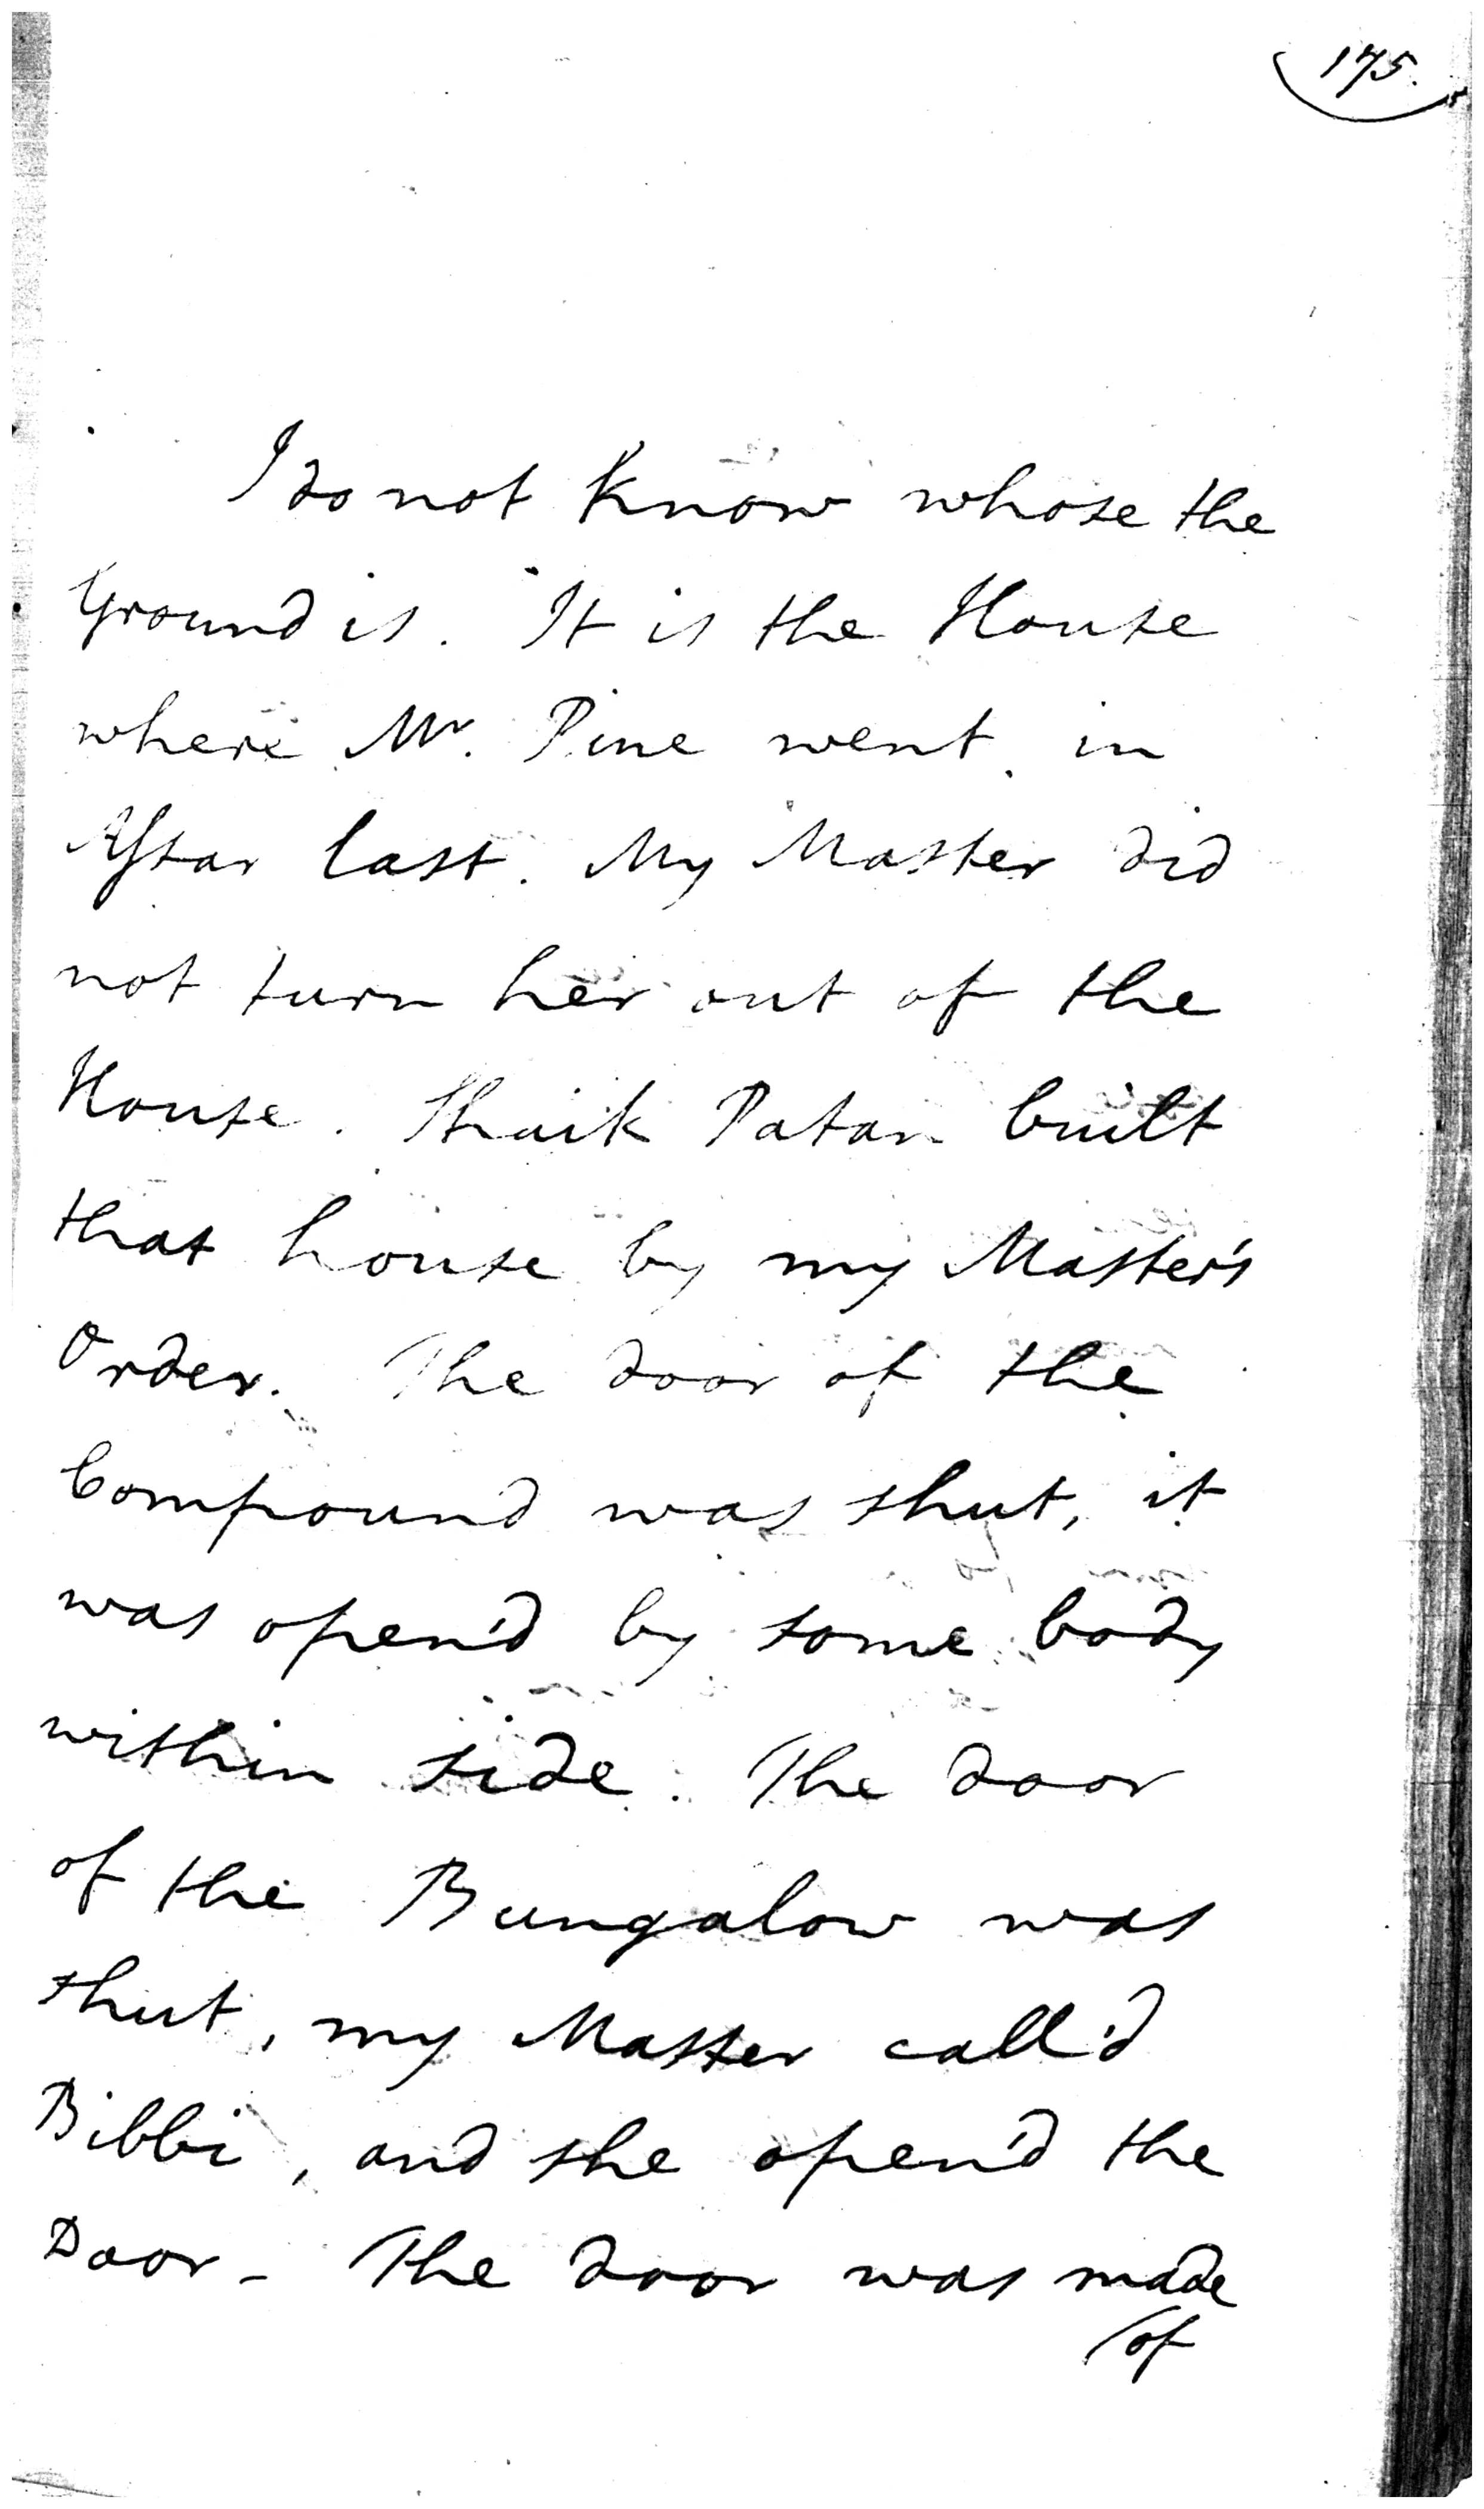 175.
I do not know whose the
Ground is. It is the House
where Mr. Pine went in
Assar last. My Master did
not turn her out of the
House. Shaik Patan built
that house by my Master's
Order. The door of the
Compound was shut, it
was open'd by some body
within side. The door
of the Bungalow was
shut, my Master call'd
Bibbi, and she open'd the
Door - The door was made
of